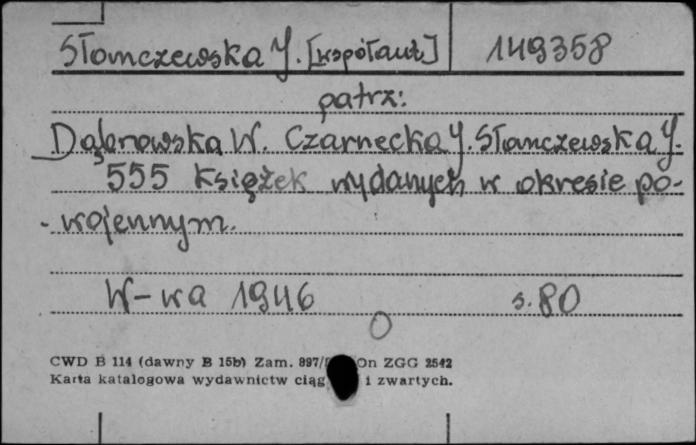 Słomczewska J. [współaut] 149358
patrz:
Dąbrowska W. Czarnecka J. Słomczewska J.
555 książek wydanych w okresie po-
- wojennym.
W-wa 1946 s. 80
CWD B 114 (dawny B 15b) Zam. 897/ On ZGG 2542
Karta katalogowa wydawnictw ciąg i zwartych.